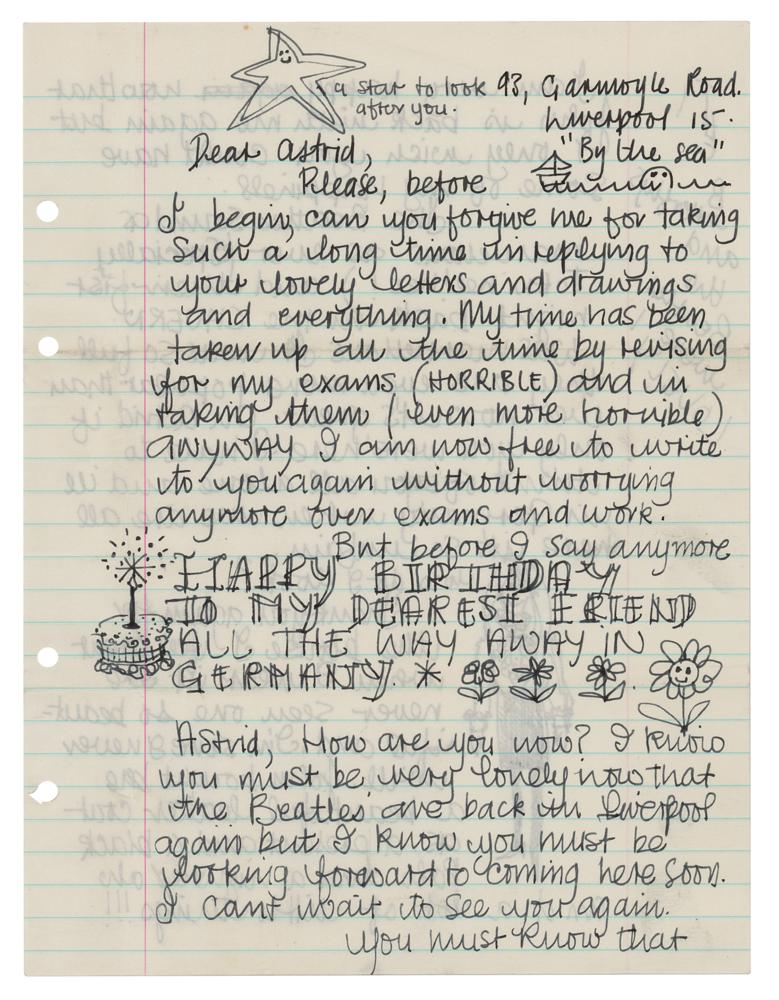 a star to look
after you.
93, Garmoyle Road.
Liverpool 15.
"By the sea"
Dear Astrid,
Please, before
I begin, can you forgive me for taking
such a long time in replying to
your lovely letters and drawings
and everything. My time has been
taken up all the time by revising
for my exams (HORRIBLE) and in
taking them (even more horrible)
ANYWAY I am now free to write
to you again without worrying
anymore over exams and work.
But before I say anymore
HAPPY BIRTHDAY
TO MY DEAREST FRIEND
ALL THE WAY AWAY IN
GERMANY.
Astrid, How are you now? I know
you must be very lonely now that
the Beatles are back in Liverpool
again but I know you must be
looking forward to coming here soon.
I cant wait to see you again.
You must know that